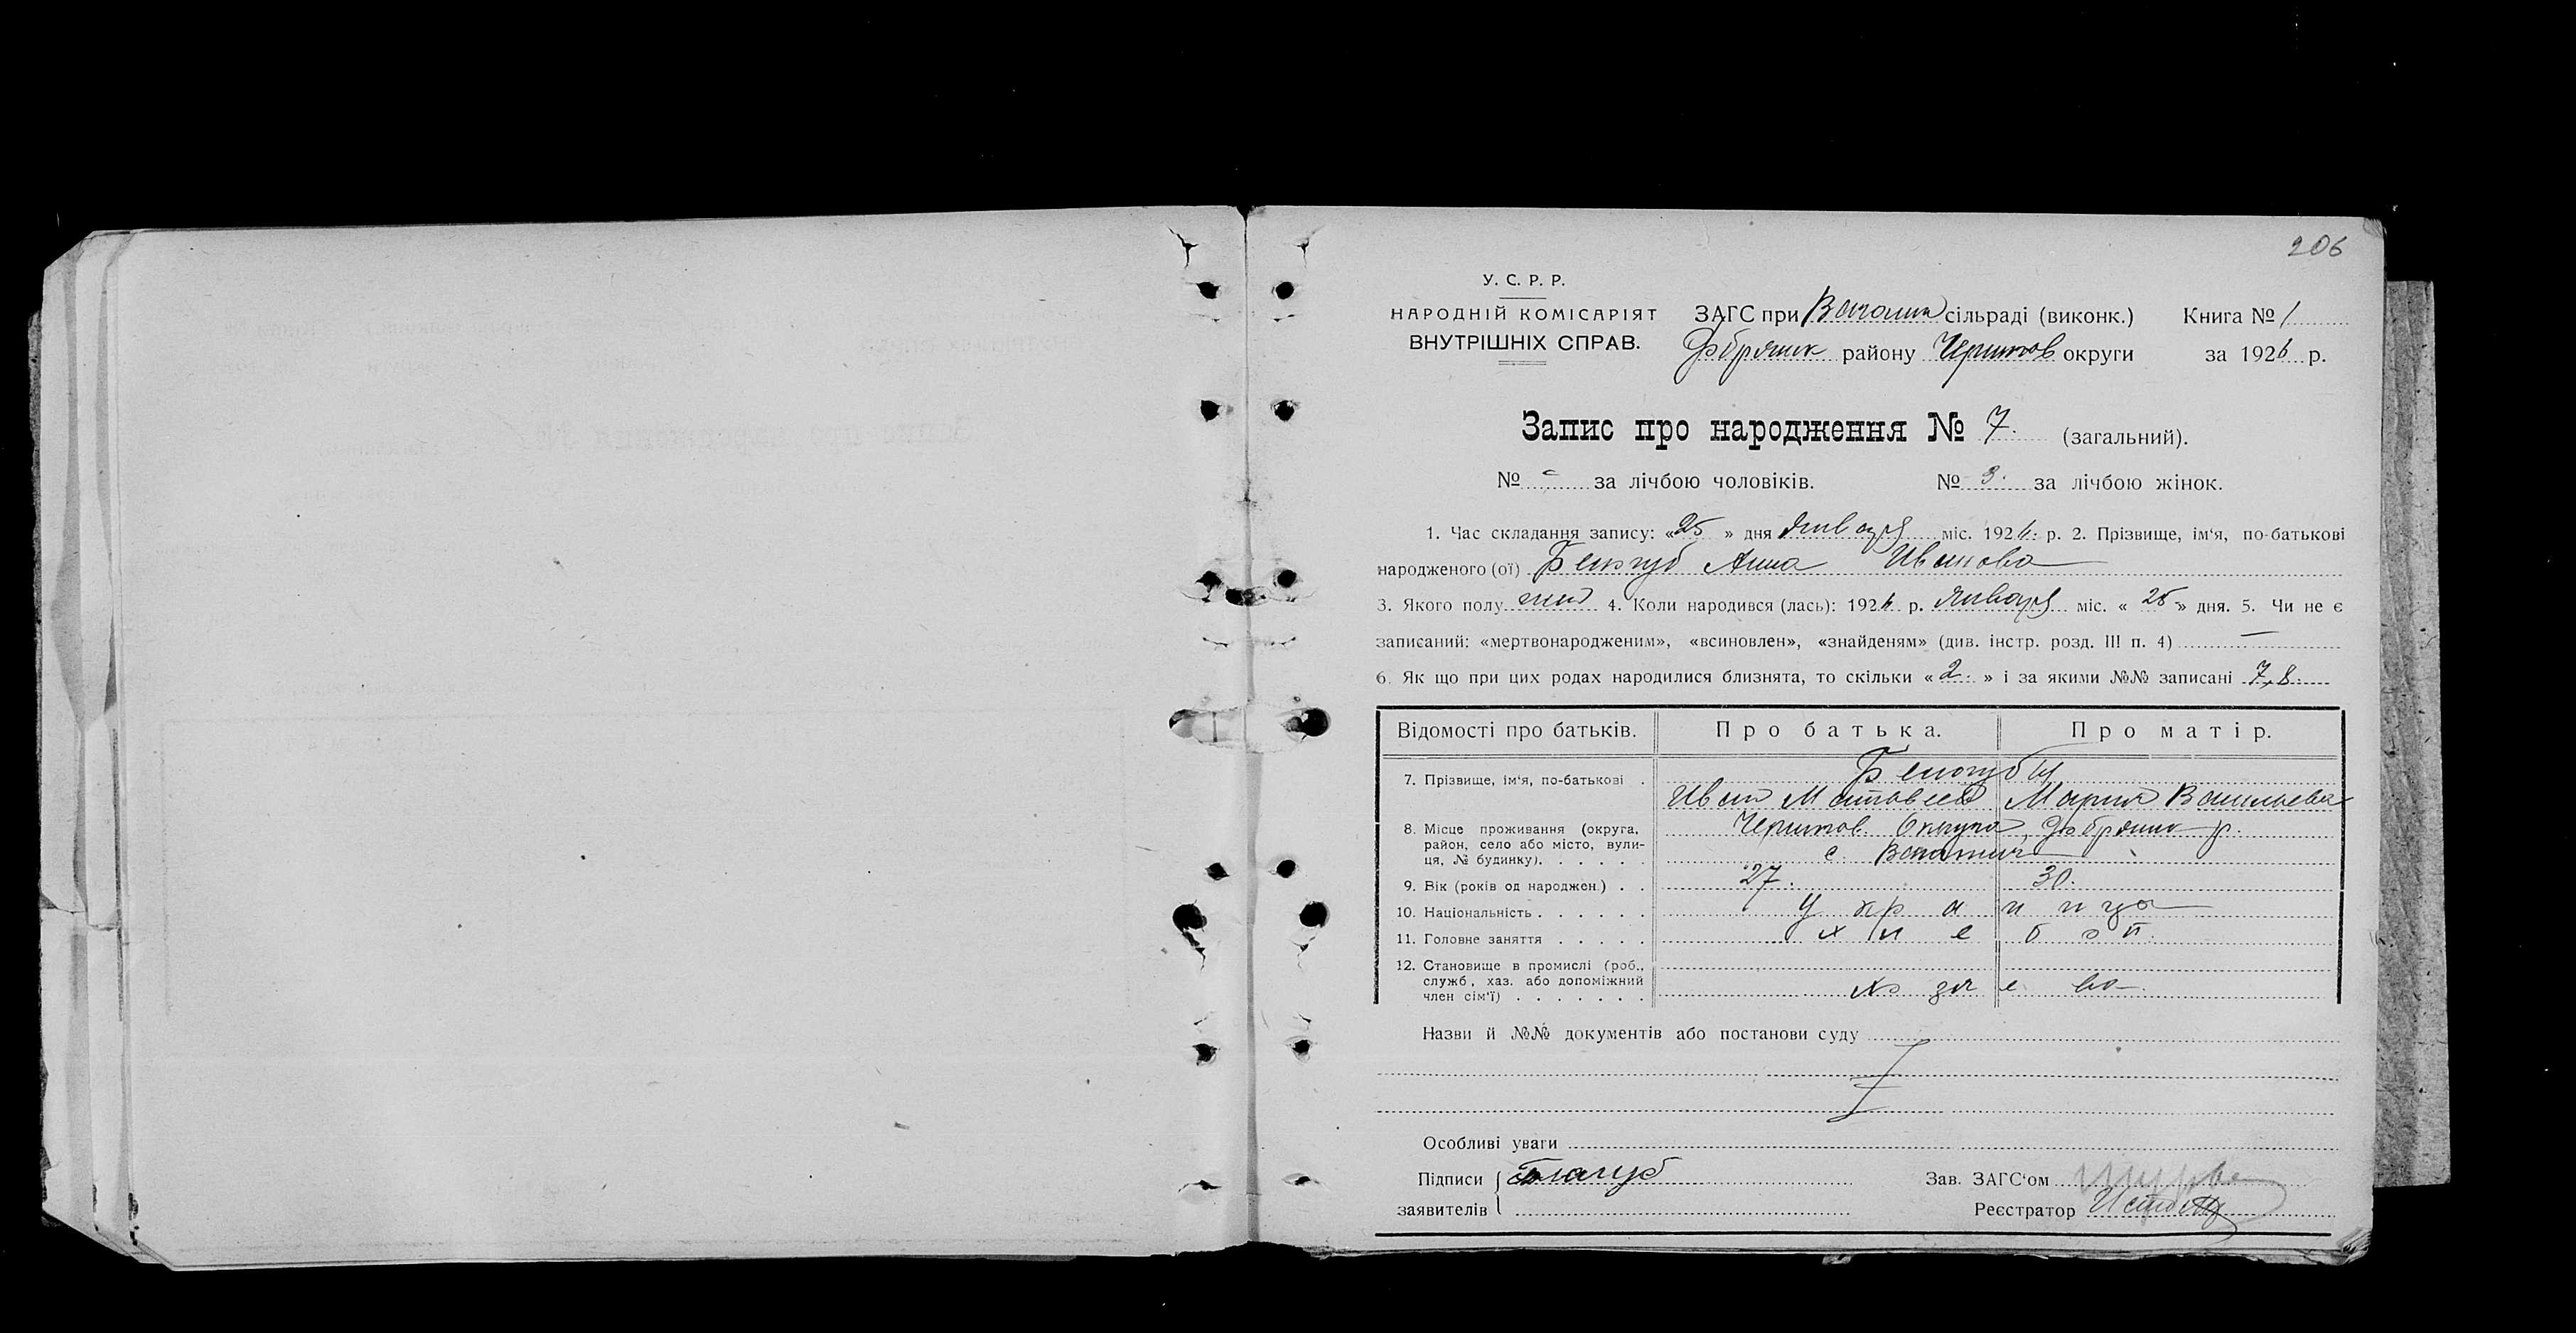 206
У. С. Р. Р.
НАРОДНІЙ КОМІСАРІЯТ
ВНУТРІШНІХ СПРАВ.
ЗАГС при сільраді (виконк.) Книга № 1
району Чернигов округи за 1926 р.
Запис про народження № 7. (загальний).
№ за лічбою чоловіків. № 3. за лічбою жінок.
1. Час складання запису: «25» дня Января міс. 1926. р. 2. Прізвище, ім‘я, по-батькові
народженого (ої) Белогуб Анна Иванова
3. Якого полу жен 4. Коли народився (лась): 1926 р. Января міс. «25» дня. 5. Чи не є
записаний: «мертвонародженим», «всиновлен», «знайденям» (див. інстр. розд. III п. 4) —
6. Як що при цих родах народилися близнята, то скільки «2.» і за якими №№ записані 7,8.
Відомості про батьків. Про батька. Про матір.
7. Прізвище, ім‘я, по-батькові . Белогубы
Иван Матвеев Мария Васильева
8. Місце проживання (округа, район, село або місто, вули-
ця, № будинку). . . . . . Чернигов. Округа, р.
с.
9. Вік (років од народжен.) . . 27. 30.
10. Національність . . . . . . украинцы
11. Головне заняття . . . . . хлебоп.
12. Становище в промислі (роб.,
служб, хаз. або допоміжний
член сім‘ї) . . . . . . .
Назви й №№ документів або постанови суду
Особливі уваги
Підписи Белогуб Зав. ЗАГС‘ом
заявителів Реєстратор